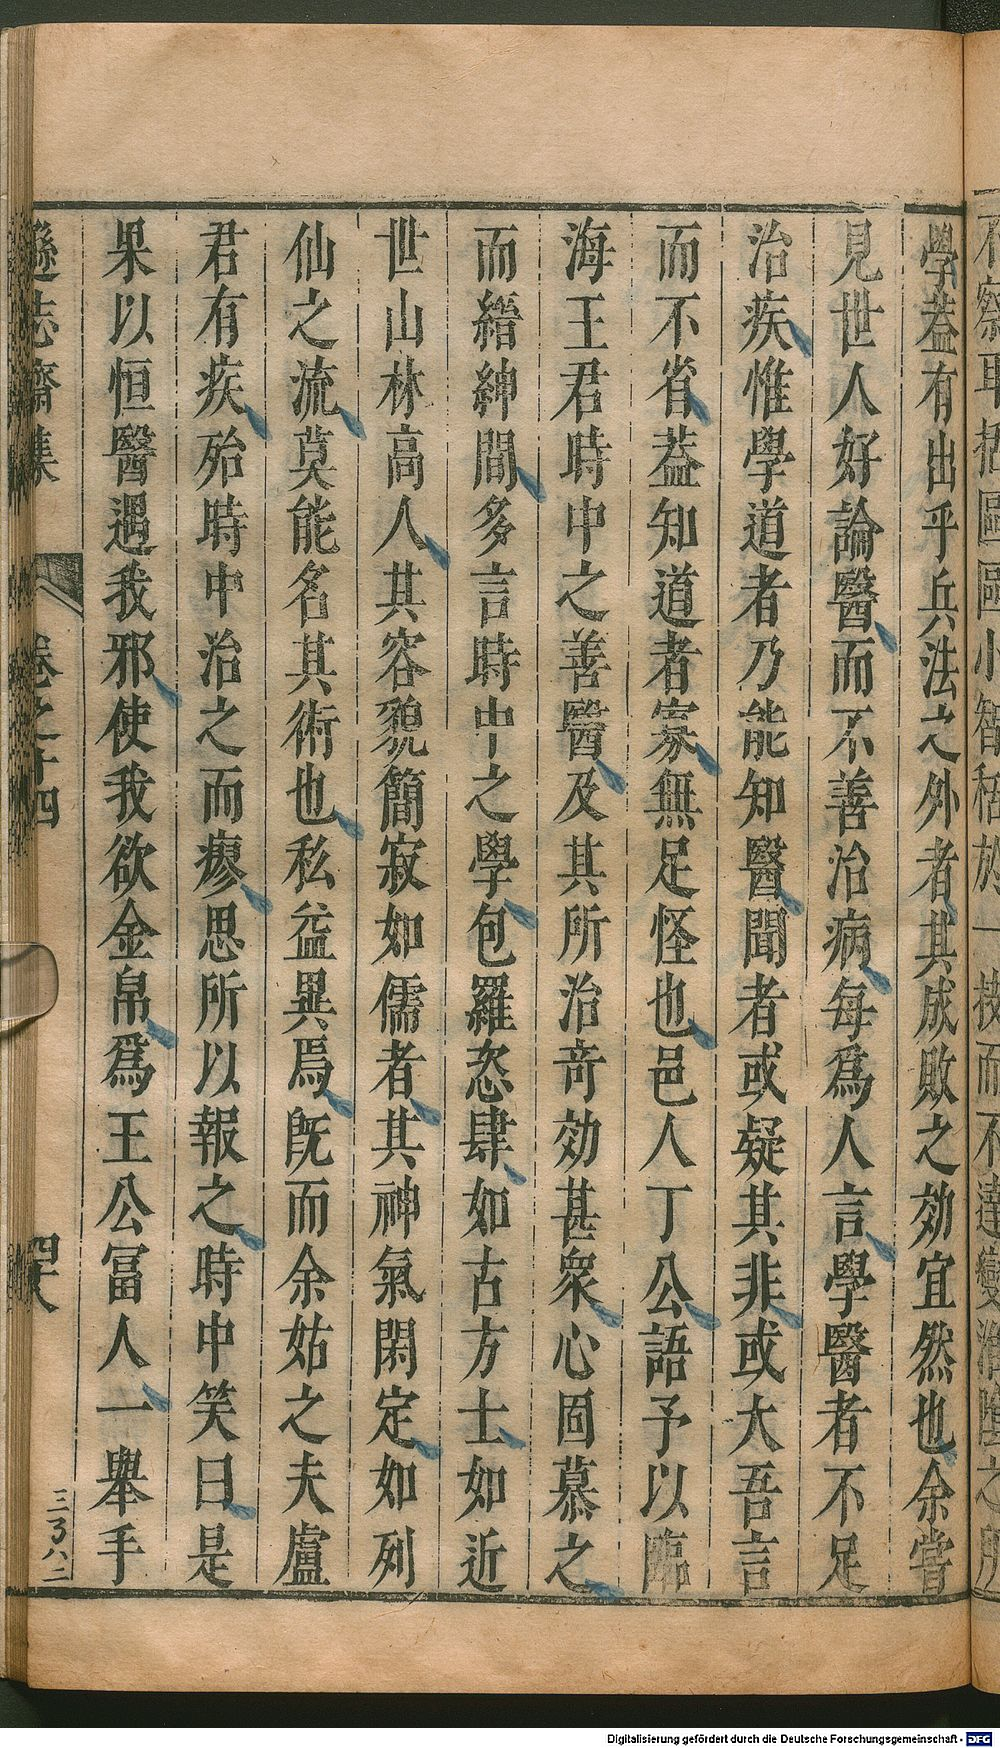 學葢有出乎兵法之外者其成敗之効宜然也余嘗
見世人好論醫而不善治病每爲人言學醫者不足
治疾惟學道者乃能知醫聞者或疑其非或大吾言
而不省葢知道者寡無足怪也邑人丁公語予以臨
海王君時中之善醫及其所治竒効甚衆心固慕之
而縉紳間多言時中之學包羅恣肆如古方士如近
世山林高人其容貌簡寂如儒者其神氣閑定如列
仙之流莫能名其術也私益異焉旣而余姑之夫盧
君有疾殆時中治之而瘳思所以報之時中笑曰是
果以恒醫遇我邪使我欲金帛爲王公冨人一舉手
遜志齋集
卷之十四
四十八
Digitalisierung gefördert durch die Deutsche Forschungsgemeinschaft - DFG